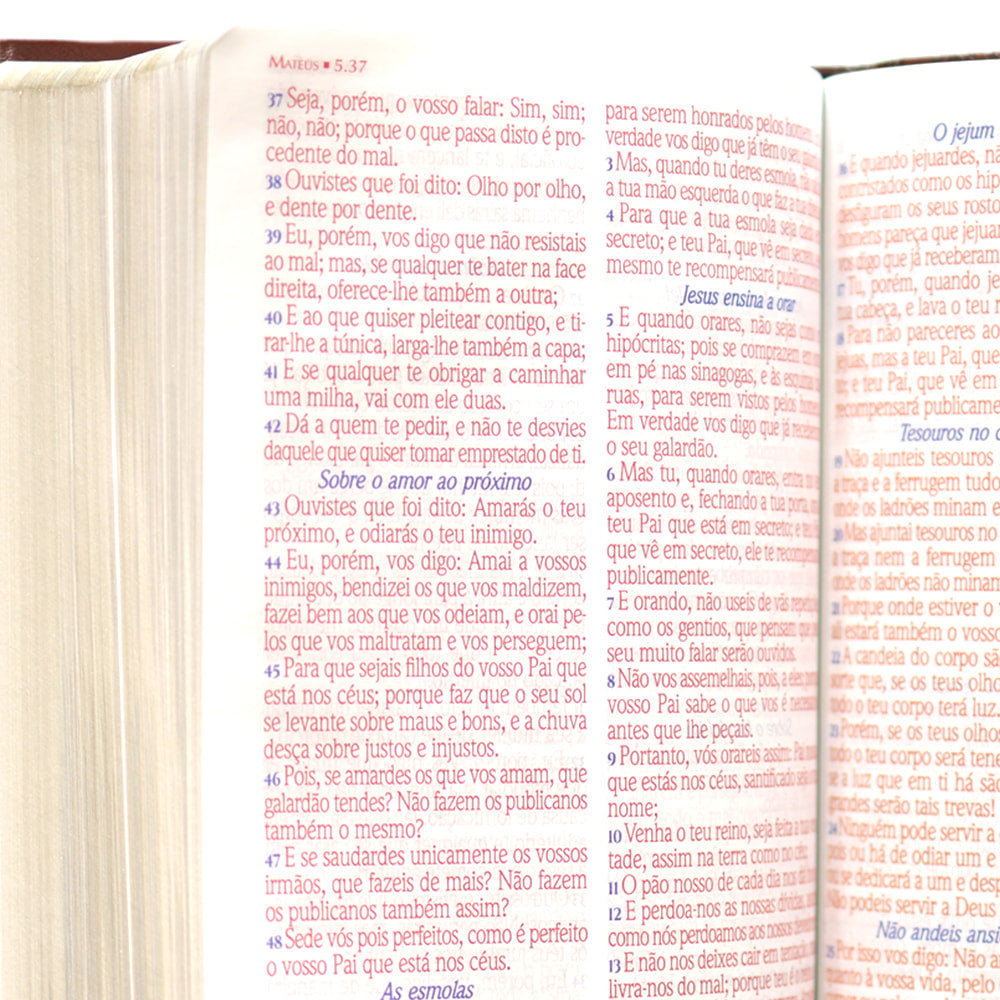 MATEUS ▪ 5.37
37 Seja, porém, o vosso falar: Sim, sim;
não, não; porque o que passa disto é pro-
cedente do mal.
38 Ouvistes que foi dito: Olho por olho,
e dente por dente.
39 Eu, porém, vos digo que não resistais
ao mal; mas, se qualquer te bater na face
direita, oferece-lhe também a outra;
40 E ao que quiser pleitear contigo, e ti-
rar-lhe a túnica, larga-lhe também a capa;
41 E se qualquer te obrigar a caminhar
uma milha, vai com ele duas.
42 Dá a quem te pedir, e não te desvies
daquele que quiser tomar emprestado de ti.
Sobre o amor ao próximo
43 Ouvistes que foi dito: Amarás o teu
próximo, e odiarás o teu inimigo.
44 Eu, porém, vos digo: Amai a vossos
inimigos, bendizei os que vos maldizem,
fazei bem aos que vos odeiam, e orai pe-
los que vos maltratam e vos perseguem;
45 Para que sejais filhos do vosso Pai que
está nos céus; porque faz que o seu sol
se levante sobre maus e bons, e a chuva
desça sobre justos e injustos.
46 Pois, se amardes os que vos amam, que
galardão tendes? Não fazem os publicanos
também o mesmo?
47 E se saudardes unicamente os vossos
irmãos, que fazeis de mais? Não fazem
os publicanos também assim?
48 Sede vós pois perfeitos, como é perfeito
o vosso Pai que está nos céus.
As esmolas
para serem honrados pelos
verdade vos digo que já têm o seu
3 Mas, quando tu deres esmola, não
a tua mão esquerda o que faz a tua
4 Para que a tua esmola seja dada
secreto; e teu Pai, que vê em secreto
mesmo te recompensará publicamente
Jesus ensina a orar
5 E quando orares, não sejas como
hipócritas; pois se comprazem em
em pé nas sinagogas, e às esquinas
ruas, para serem vistos pelos
Em verdade vos digo que já
o seu galardão.
6 Mas tu, quando orares, entra no
aposento e, fechando a tua porta,
teu Pai que está em secreto; e teu
que vê em secreto, ele te
publicamente.
7 E orando, não useis de vãs
como os gentios, que pensam que
seu muito falar serão ouvidos.
8 Não vos assemelhais, pois, a eles;
vosso Pai sabe o que vos é
antes que lhe peçais.
9 Portanto, vós orareis assim: Pai
que estás nos céus, santificado seja o
nome;
10 Venha o teu reino, seja feita a tua
tade, assim na terra como no céu;
11 O pão nosso de cada dia nos dá
12 E perdoa-nos as nossas dívidas,
como nós perdoamos aos nossos
13 E não nos deixes cair em tentação;
livra-nos do mal; porque teu é o
O jejum
16 E quando jejuardes,
contristados como os
desfiguram os seus
homens pareça que
vos digo que já receberam
17 Tu, porém, quando
tua cabeça, e lava o teu
18 Para não pareceres ao
jejuas, mas a teu Pai, que
e teu Pai, que vê em
recompensará
Tesouros no
19 Não ajunteis tesouros
a traça e a ferrugem tudo
onde os ladrões minam e
20 Mas ajuntai tesouros no
a traça nem a ferrugem
onde os ladrões não minam
21 Porque onde estiver o
ali estará também o vosso
22 A candeia do corpo são
sorte que, se os teus olhos
todo o teu corpo terá luz.
23 Porém, se os teus olhos
todo o teu corpo será
se a luz que em ti há são
grandes serão tais trevas!
24 Ninguém pode servir a
pois ou há de odiar um e
ou se dedicará a um e
Não podeis servir a Deus
Não andeis
25 Por isso vos digo: Não
quanto à vossa vida, pelo